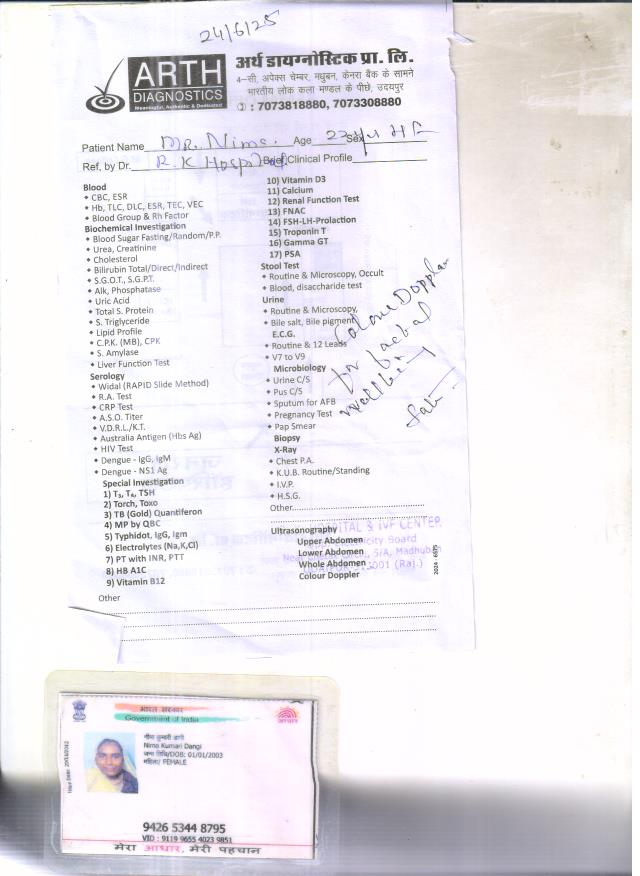 24/6/25
ARTH
DIAGNOSTICS
Meaningful, Authentic & Dedicated
अर्थ डायग्नोस्टिक प्रा. लि.
4-सी, अपेक्स चेम्बर, मधुबन, केनरा बैंक के सामने
भारतीय लोक कला मण्डल के पीछे, उदयपुर
: 7073818880, 7073308880
Patient Name MR. Nima. Age 22 yr Sex
Ref, by Dr. R. K Hospital Brief Clinical Profile
Blood
CBC, ESR
Hb, TLC, DLC, ESR, TEC, VEC
Blood Group & Rh Factor
Biochemical Investigation
Blood Sugar Fasting/Random/P.P.
Urea, Creatinine
Cholesterol
Bilirubin Total/Direct/Indirect
S.G.O.T., S.G.P.T.
Alk, Phosphatase
Uric Acid
Total S. Protein
S. Triglyceride
Lipid Profile
C.P.K. (MB), CPK
S. Amylase
Liver Function Test
Serology
Widal (RAPID Slide Method)
R.A. Test
CRP Test
A.S.O. Titer
V.D.R.L./K.T.
Australia Antigen (Hbs Ag)
HIV Test
Dengue - IgG, IgM
Dengue - NS1 Ag
Special Investigation
1) T3, T4, TSH
2) Torch, Toxo
3) TB (Gold) Quantiferon
4) MP by QBC
5) Typhidot, IgG, Igm
6) Electrolytes (Na,K,Cl)
7) PT with INR, PTT
8) HB A1C
9) Vitamin B12
10) Vitamin D3
11) Calcium
12) Renal Function Test
13) FNAC
14) FSH-LH-Prolaction
15) Troponin T
16) Gamma GT
17) PSA
Stool Test
Routine & Microscopy, Occult
Blood, disaccharide test
Urine
Routine & Microscopy,
Bile salt, Bile pigment
E.C.G.
Routine & 12 Leads
V7 to V9
Microbiology
Urine C/S
Pus C/S
Sputum for AFB
Pregnancy Test
Pap Smear
Biopsy
X-Ray
Chest P.A.
K.U.B. Routine/Standing
I.V.P.
H.S.G.
Other
Colour Doppler
for faetal
wellbeing
Ultrasonography
Upper Abdomen
Lower Abdomen
Whole Abdomen
Colour Doppler
HOSPITAL & IVF CENTER
Electricity Board
5/A, Madhuban
313001 (Raj.)
Other
भारत सरकार
Government of India
आधार
नीमा कुमारी डांगी
Nima Kumari Dangi
जन्म तिथि/DOB: 01/01/2003
महिला/ FEMALE
9426 5344 8795
VID : 9119 9655 4023 9851
मेरा आधार, मेरी पहचान